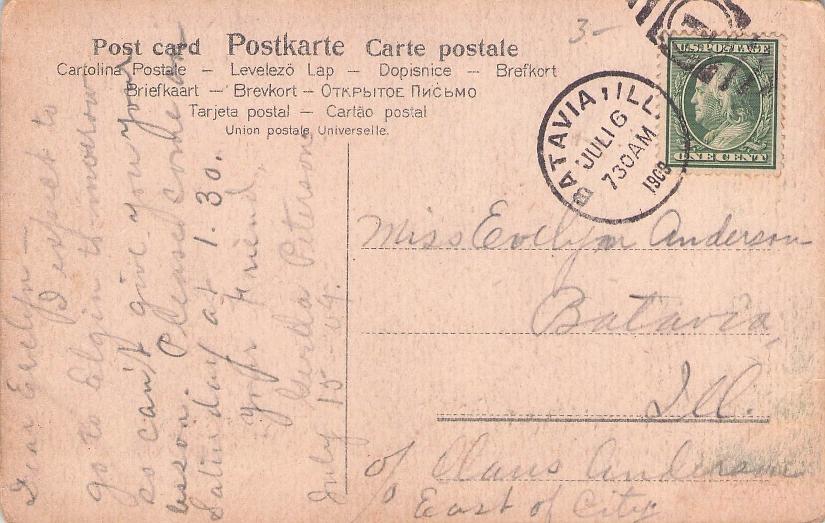 3-
Post card Postkarte Carte postale
Cartolina Postale – Levelező Lap – Dopisnice – Brefkort
Briefkaart – Brevkort – Открытое Письмо
Tarjeta postal – Cartão postal
Union postale Universelle.
U.S. POSTAGE
ONE CENT
BATAVIA, ILL.
JUL 16
730AM
1909
Dear Evelyn –
I expect to
go to Elgin tomorrow
so can't give you your
lesson. Please come
Saturday at 1.30.
Your friend,
Gerda Peterson
July 15 – 09.
Miss Evelyn Anderson
Batavia,
Ill.
c/o Claus Anderson
East of City